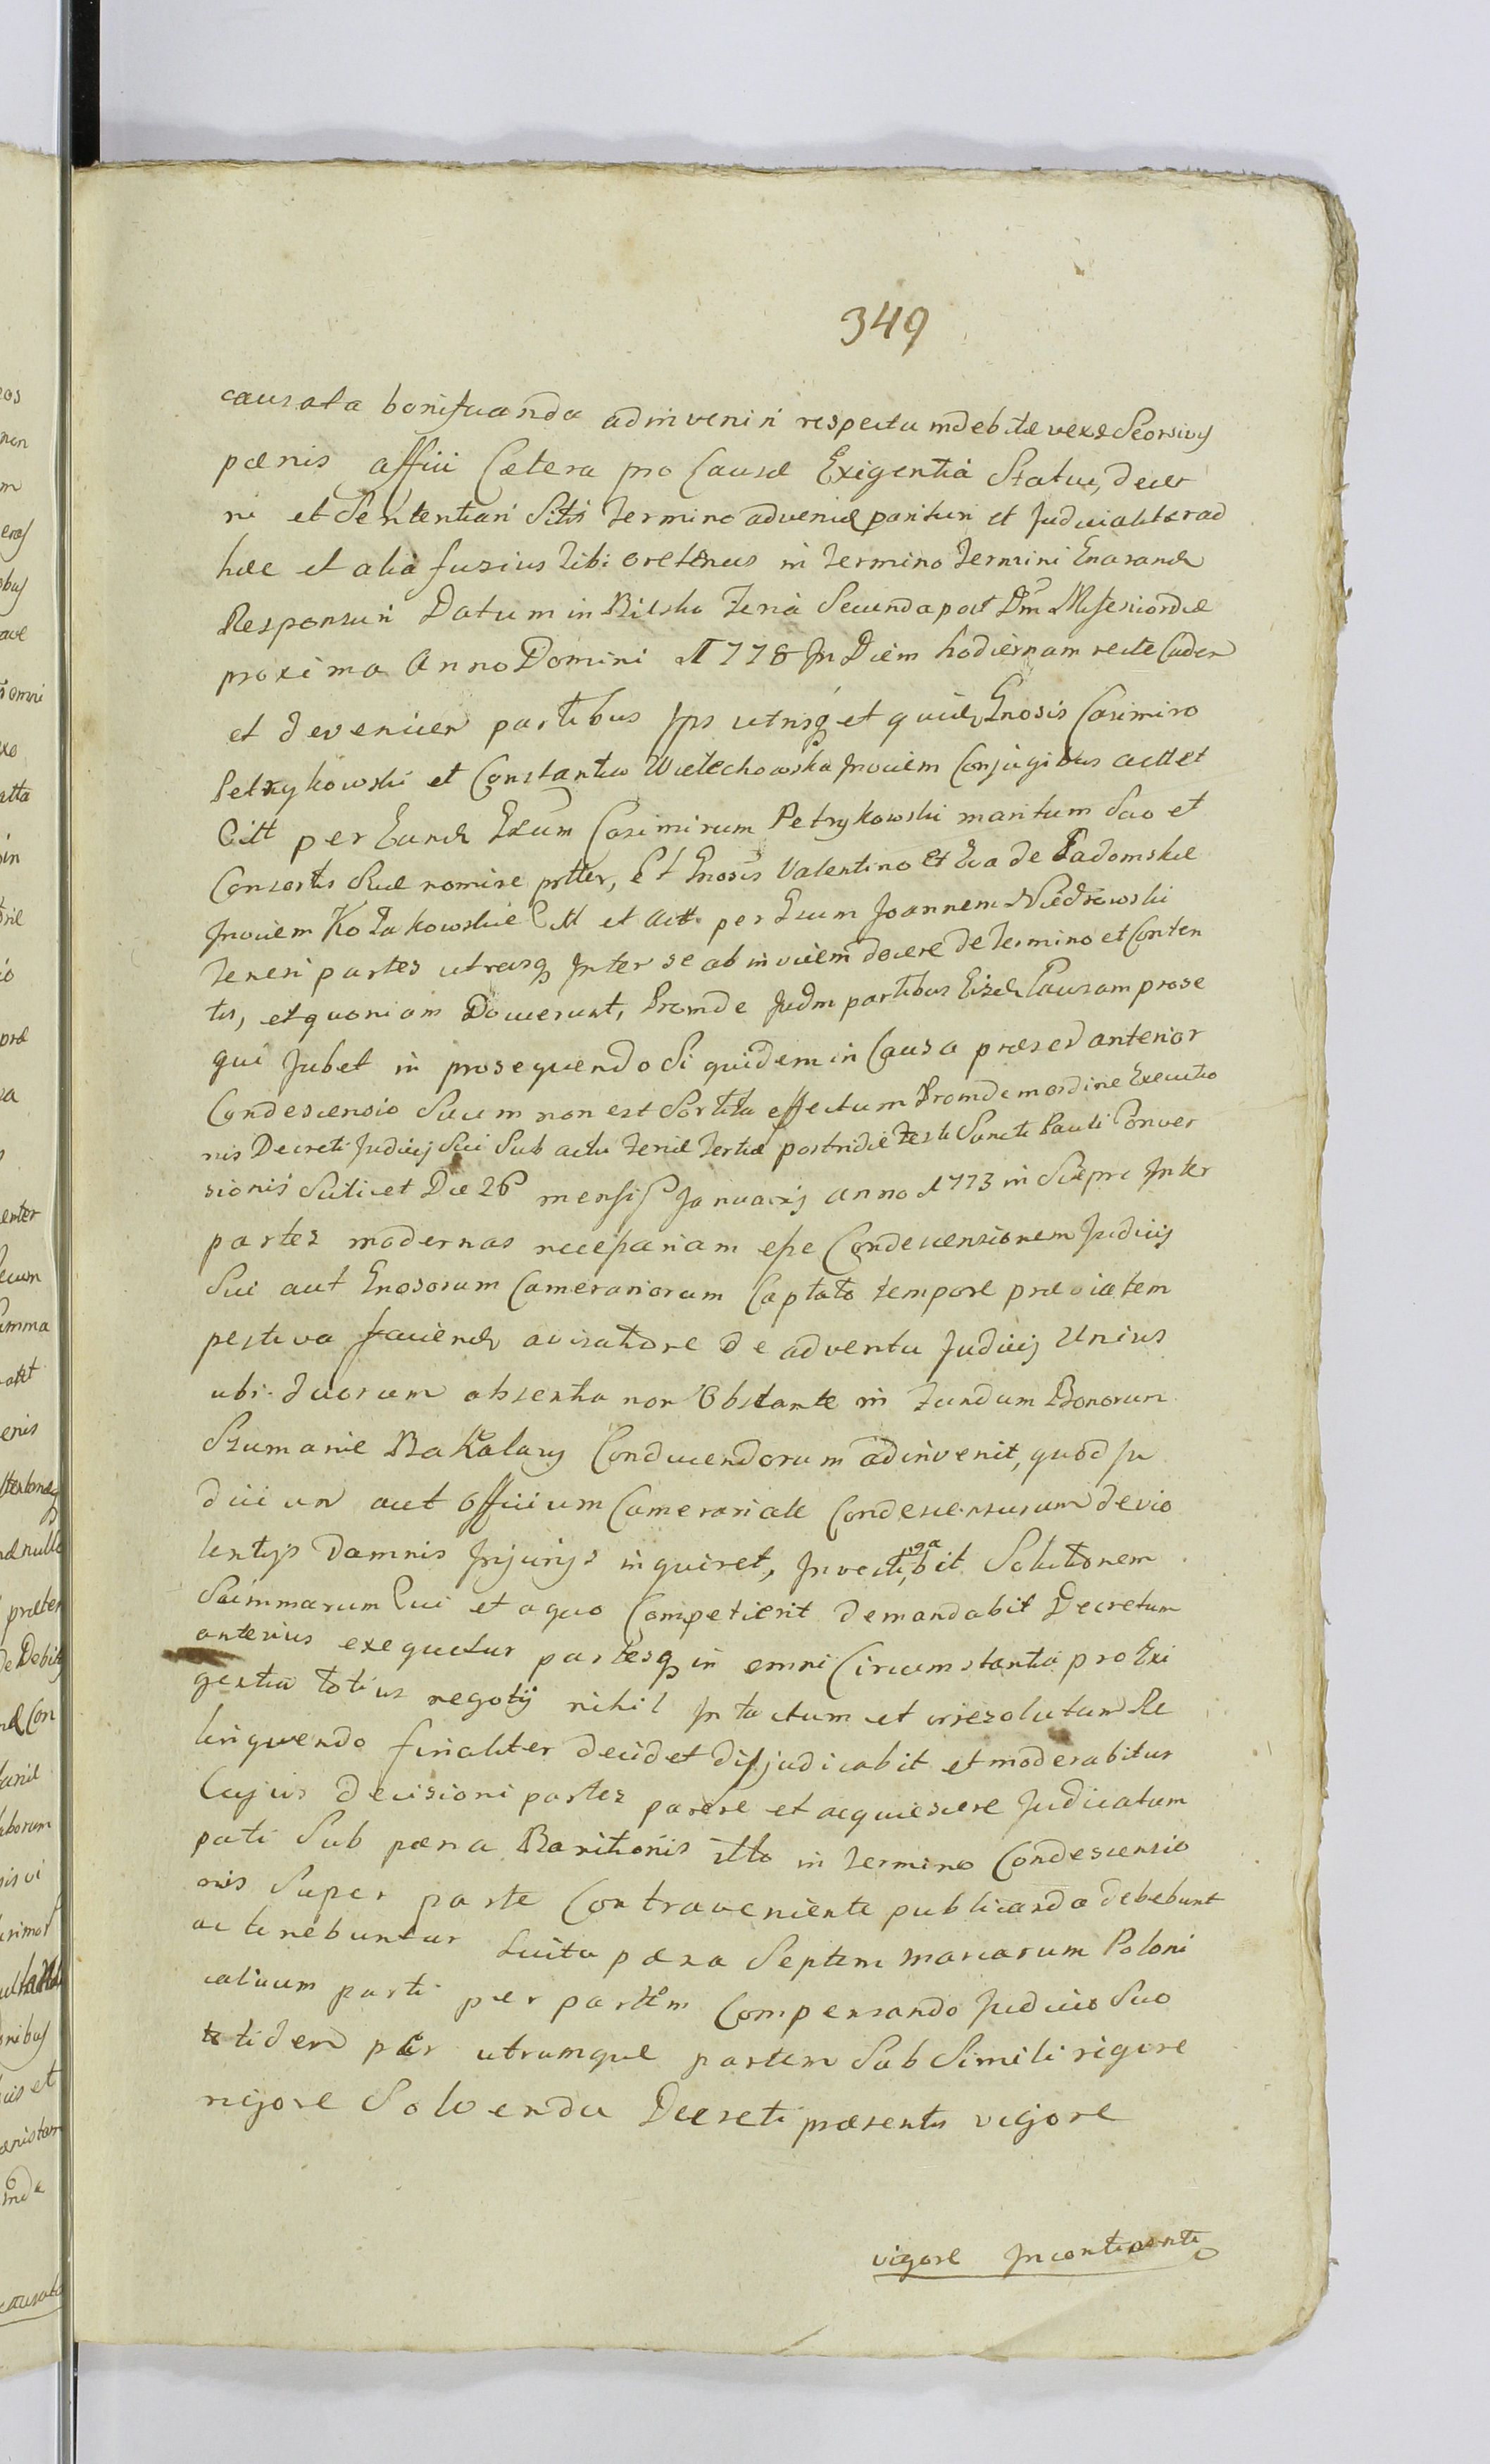 349
causata bonificanda adinveniri respectu indebitæ vexæ Seorsivis
pænis affici Cætera pro Causæ Exigentia Statui, decer
ni et Sententiari Sitis Termino adveniæ parituri et Judicialiter ad
hæc et alia fusius Tibi oretenus in Termino Termini Enarand
Responsuri Datum in Bilsko Feria Secunda post Dm Misericordiæ
proxima Anno Domini 1778 In Diem hodiernam recte Caden
et devenien partibus Ips utrisq et quid Gnosis Casimiro
Petrykowski et Constantia Wielechowska Invicem Conjugibus actt et
Citt per Eund Gsum Casimirum Petrykowski maritum Suo et
Consortis Suæ nomine pntter, et Gnosis Valentino et Eva de Radomskie
Invicem Kołakowskie Citt et Actt. per Gsum Joannem Niedrowski
Teneri partes utrasq Inter se ab invicem docere de Termino et Conten
tis, et quoniam Docuerunt, Proinde Judm partibus Eisd Causam prose
qui Jubet in prosequendo Siquidem in Causa præsed anterior
Condescensio Suum non est Sortita effectum Proindem ordine Executio
nis Decreti Judicij Sui Sub actu Feriæ Tertiæ postridie Festi Sancti Pauli Conver
sionis Scilicet Die 26 mensis Januarij anno 1773 in Sierpc Inter
partes modernas necessariam esse Condescensionem Judicij
Sui aut Gnosorum Camerariorum Captato tempore prævia tem
pestiva faciend avisatione de adventu Judicij Unius
ubi duorum absentia non Obstante in Fundum Bonorum
Szumanie Bakalary Conducendorum adinvenit, quod Ju
dicium aut Officium Camerariale Condescensurum de vio
lentijs Damnis Injurijs inquiret, Investigabit Solutionem
Summarum Cui et a quo Competierit demandabit Decretum
anterius exequetur partesq in omni Circumstantia pro Exi
gentia totius negotij nihil Intactum et irresolutum Re
linquendo finaliter decidet dijudicabit et moderabitur
Cujus decisioni partes parere et acquiescere Judicatum
pati Sub pæna Banitionis illo in Termino Condescensio
nis Super parte Contraveniente publicanda debebunt
ac tenebuntur Luita pæna Septem marcarum Poloni
calium parti per partem Compensando Judicio Suo
totidem per utramque partem Sub Simili rigore
rigore Solvenda Decreti præsentis vigore
vigore Incontinenti